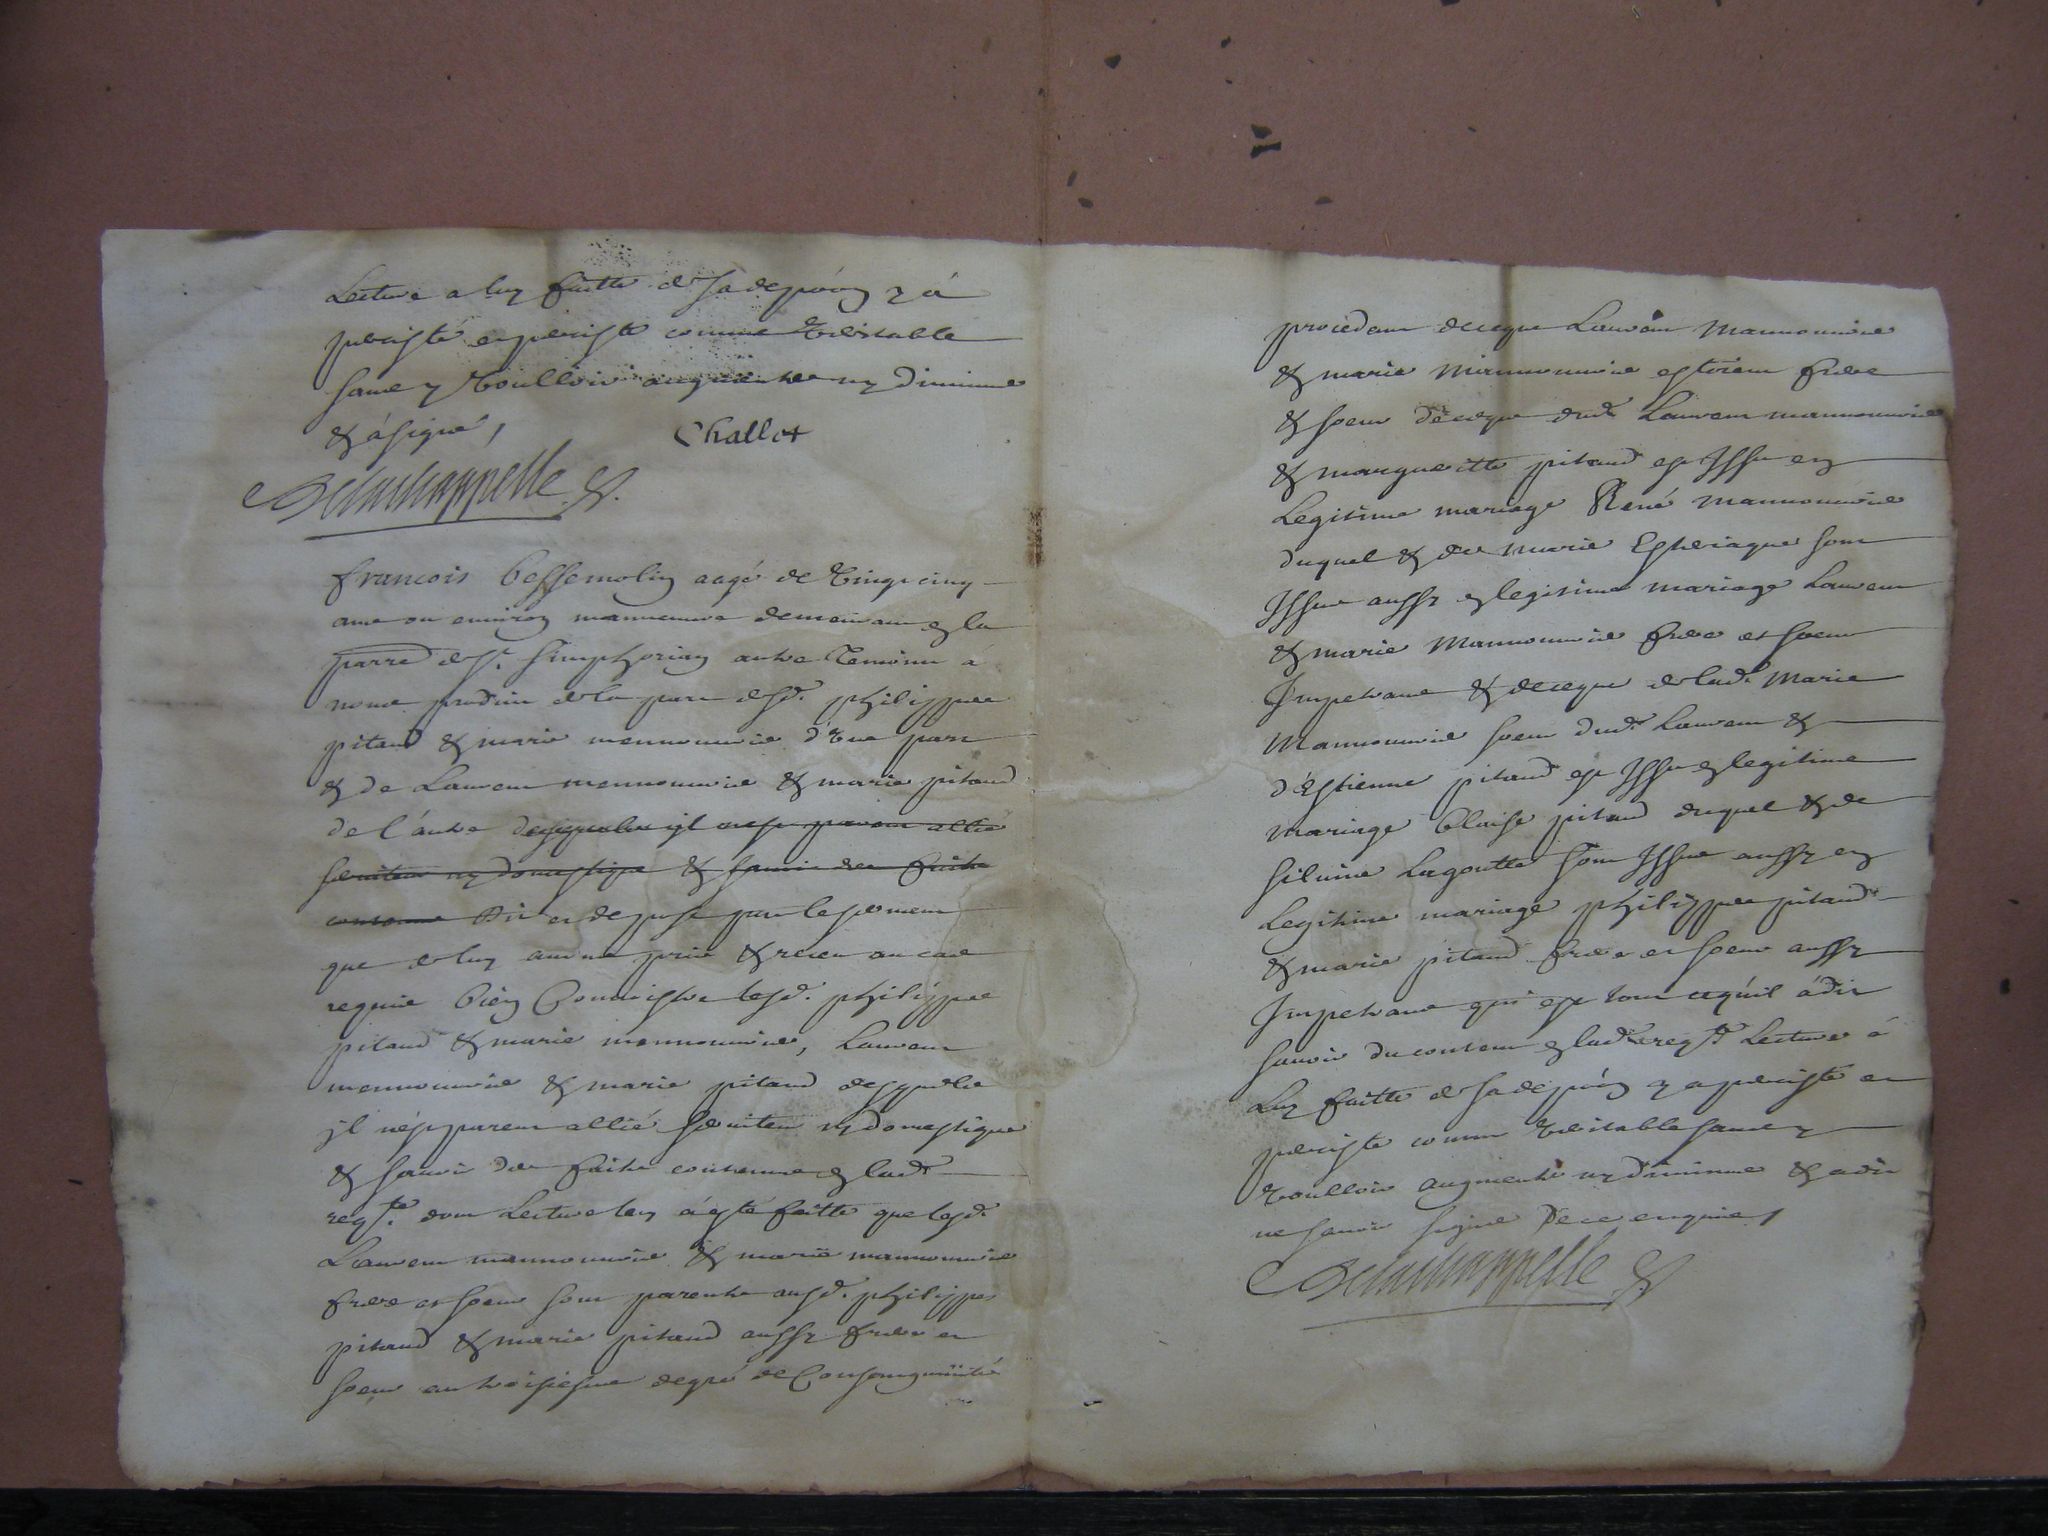 Lecture a luy faitte de sa depon y à
persisté et persiste comme veritable
sans y voulloir augmenter ny diminuer
& à signé,
Challot
Delachappelle
francois bessemolin aagé de vingt cinq
ans ou environ manoeuvre demeurant en la
parre de St. Simphorien autre temoins à
nous produit de la part desd. philippes
pitaud & marie mannouvrie d'vne part
& de Laurent mannouvrie & marie pitaud
de l'autre desquels il n'est parent allié
seruiteur ny domestique & sauoir des faits
contenus Dit et depose par le serment
que de luy auons pris & receu au cas
requis bien Connoistre lesd. philippes
pitaud & marie mannouvrie, Laurent
mannouvrie & marie pitaud desquels
il n'est parent allié seruiteur ny domestique
& sauoir des faits contenus en lad.
reqte. dont Lecture luy à esté faitte que lesd.
Laurent mannouvrie & marie mannouvrie
frere et soeur sont parents ausd. philippes
pitaud & marie pitaud aussy frere et
soeur au troisiesme degré de Consanguinité
procedant de ce que Laurent Mannouvrie
& marie Mannouvrie estoient frere
& soeur de ce que dud. Laurent mannouvrie
& margueritte pitaud est Issu en
Legitime mariage René Mannouvrie
duquel & de Marie sont
Issus aussy en legitime mariage Laurent
& marie Mannouvrie frere et soeur
Impetrans & de ce que de lad. Marie
Mannouvrie soeur dud. Laurent &
d'Estienne pitaud est Issu en legitime
mariage blaise pitaud duquel & de
siluine Lagoutte sont Issus aussy en
Legitime mariage philippes pitaud
& marie pitaud frere et soeur aussy
Impetrans qui est tout ce qu'il à dit
sauoir du contenu en lad. reqte. Lecture à
Luy faitte de sa depon y a persisté et
persiste comme veritable sans y
voulloir augmenter ny diminuer & a dit
ne sauoir signer de ce enquis,
Delachappelle